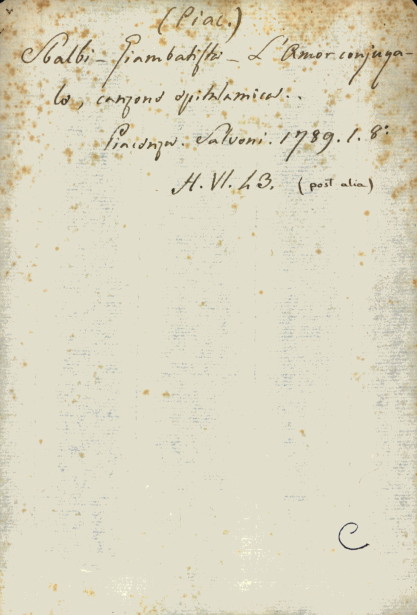 (Piac.)
Sbalbi - Giambatista - L'Amor conjuga-
le, canzone epitalamica..
Piacenza. Salvoni. 1789. 1. 8°
H. VI. 43. (post alia)
C